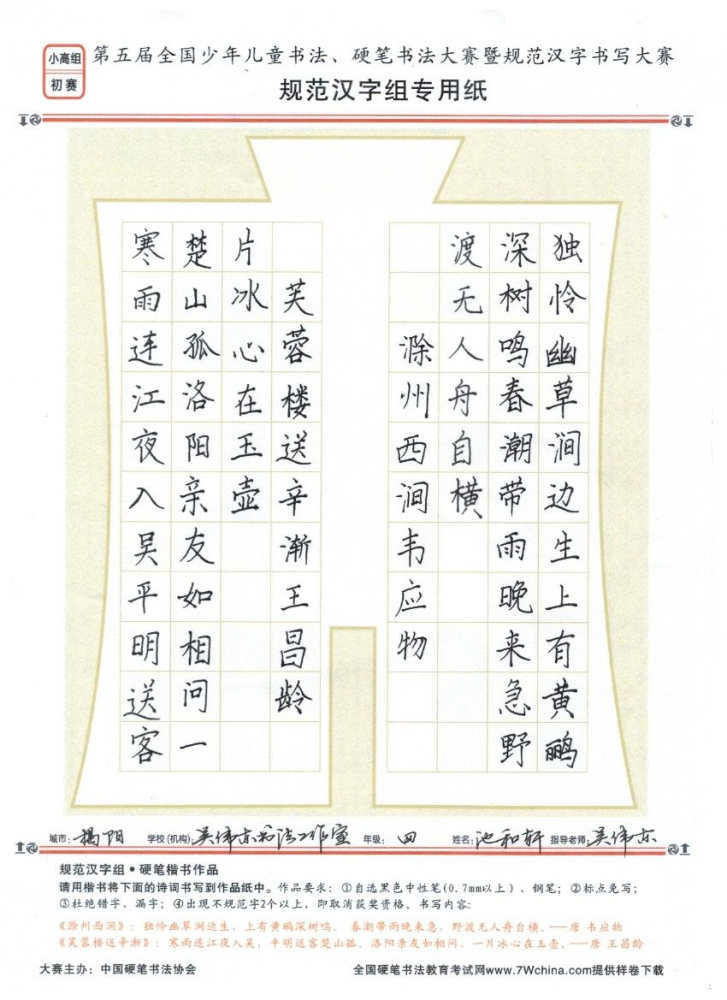 小高组
初赛
第五届全国少年儿童书法、硬笔书法大赛暨规范汉字书写大赛
规范汉字组专用纸
独怜幽草涧边生上有黄鹂
深树鸣春潮带雨晚来急野
渡无人舟自横
滁州西涧韦应物
寒雨连江夜入吴平明送客
楚山孤洛阳亲友如相问一
片冰心在玉壶
芙蓉楼送辛渐王昌龄
城市：揭阳 学校(机构)：吴伟东书法工作室 年级：四 姓名：池和轩 指导老师：吴伟东
规范汉字组•硬笔楷书作品
请用楷书将下面的诗词书写到作品纸中。作品要求：①自选黑色中性笔(0.7mm以上)、钢笔；②标点免写；
③杜绝错字、漏字；④出现不规范字2个以上，即取消获奖资格。书写内容：
《滁州西涧》：独怜幽草涧边生，上有黄鹂深树鸣。春潮带雨晚来急，野渡无人舟自横。——唐 韦应物
《芙蓉楼送辛渐》：寒雨连江夜入吴，平明送客楚山孤。洛阳亲友如相问，一片冰心在玉壶。——唐 王昌龄
大赛主办：中国硬笔书法协会 全国硬笔书法教育考试网www.7Wchina.com提供样卷下载